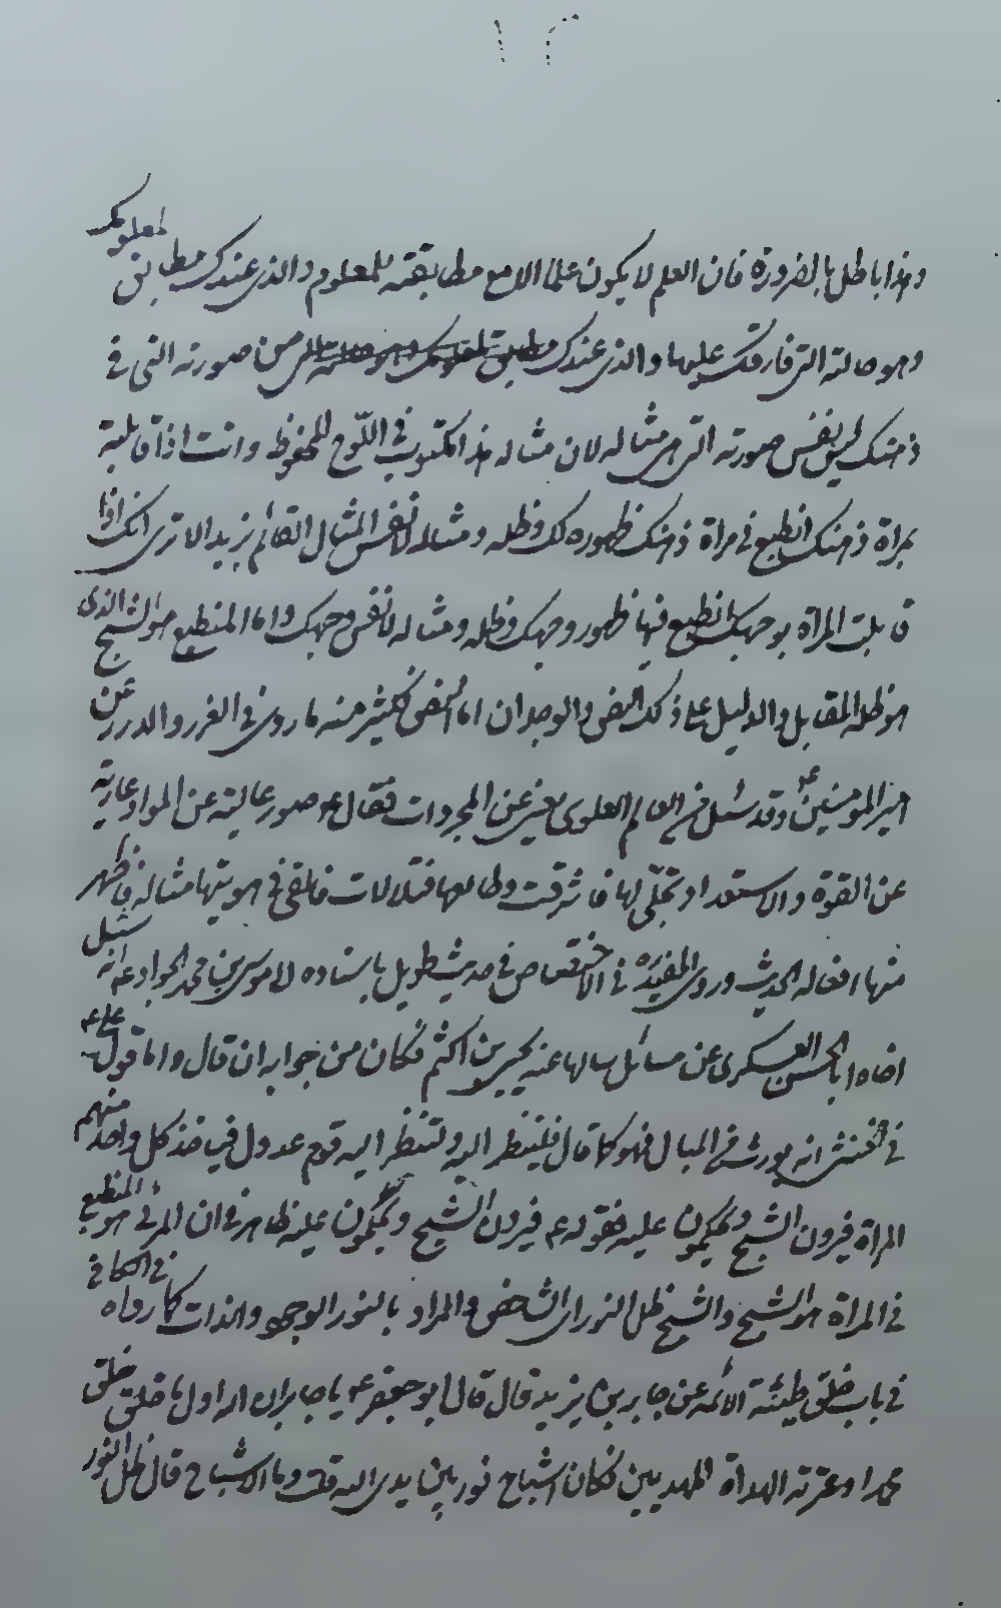 ١٢
وهذا باطل بالضرورة فان العلم لا يكون علما الا مع مطابقته للمعلوم والذى عندك مطابق لمعلومك
وهو حالته التى فارقك عليها والذى عندك من صورته التى فى
ذهنك ليس نفس صورته التى هى مثاله لان مثاله هذا مكتوب فى اللوح المحفوظ وانت اذا قابلته
بمراة ذهنك انطبع فى مراة ذهنك ظهوره لك وظله ومثاله لا نفس المثال القائم بزيد الا ترى انك اذا
قابلت المراة بوجهك انطبع فيها ظهور وجهك وظله ومثاله لا نفس وجهك واما المنطبع هو الشبح الذى
هو ظل المقابل والدليل على ذلك النص والوجدان اما النص فكثير منه ما روى فى الغرر والدرر عن
امير المؤمنين ع وقد سئل عن العالم العلوى يعنى عن المجردات فقال ع صور عالية عن المواد عارية
عن القوة والاستعداد تجلّى لها فاشرقت وطالعها فتلالات فالقى فى هويتها مثاله فاظهر
منها افعاله الحديث وروى المفيد ره فى الاختصاص فى حديث طويل باسناده الى موسى بن محمد الجواد ع انه سئل
اخاه ابا الحسن العسكرى عن مسائل سالها عنه يحيى بن اكثم فكان من جوابه ان قال واما قول على ع
فى الخنثى انه يورث من المبال فهو كما قال فلينظر اليه ولتنظر اليه قوم عدول فياخذ كل واحد منهم
المراة فيرون الشبح ويحكمون عليه فقوله ع فيرون الشبح ويحكمون عليه ظاهر فى ان المرئى هو المنطبع
فى المراة هو الشبح والشبح ظل النور اى الشخص والمراد بالنور الوجه والذات كما رواه فى الكافى
فى باب خلق طينة الائمة عن جابر بن يزيد قال قال ابو جعفر ع يا جابر ان الله اول ما خلق خلق
محمدا وعترته الهداة المهديين فكان اشباح نور بين يدى الله قلت وما الاشباح قال ظل النور